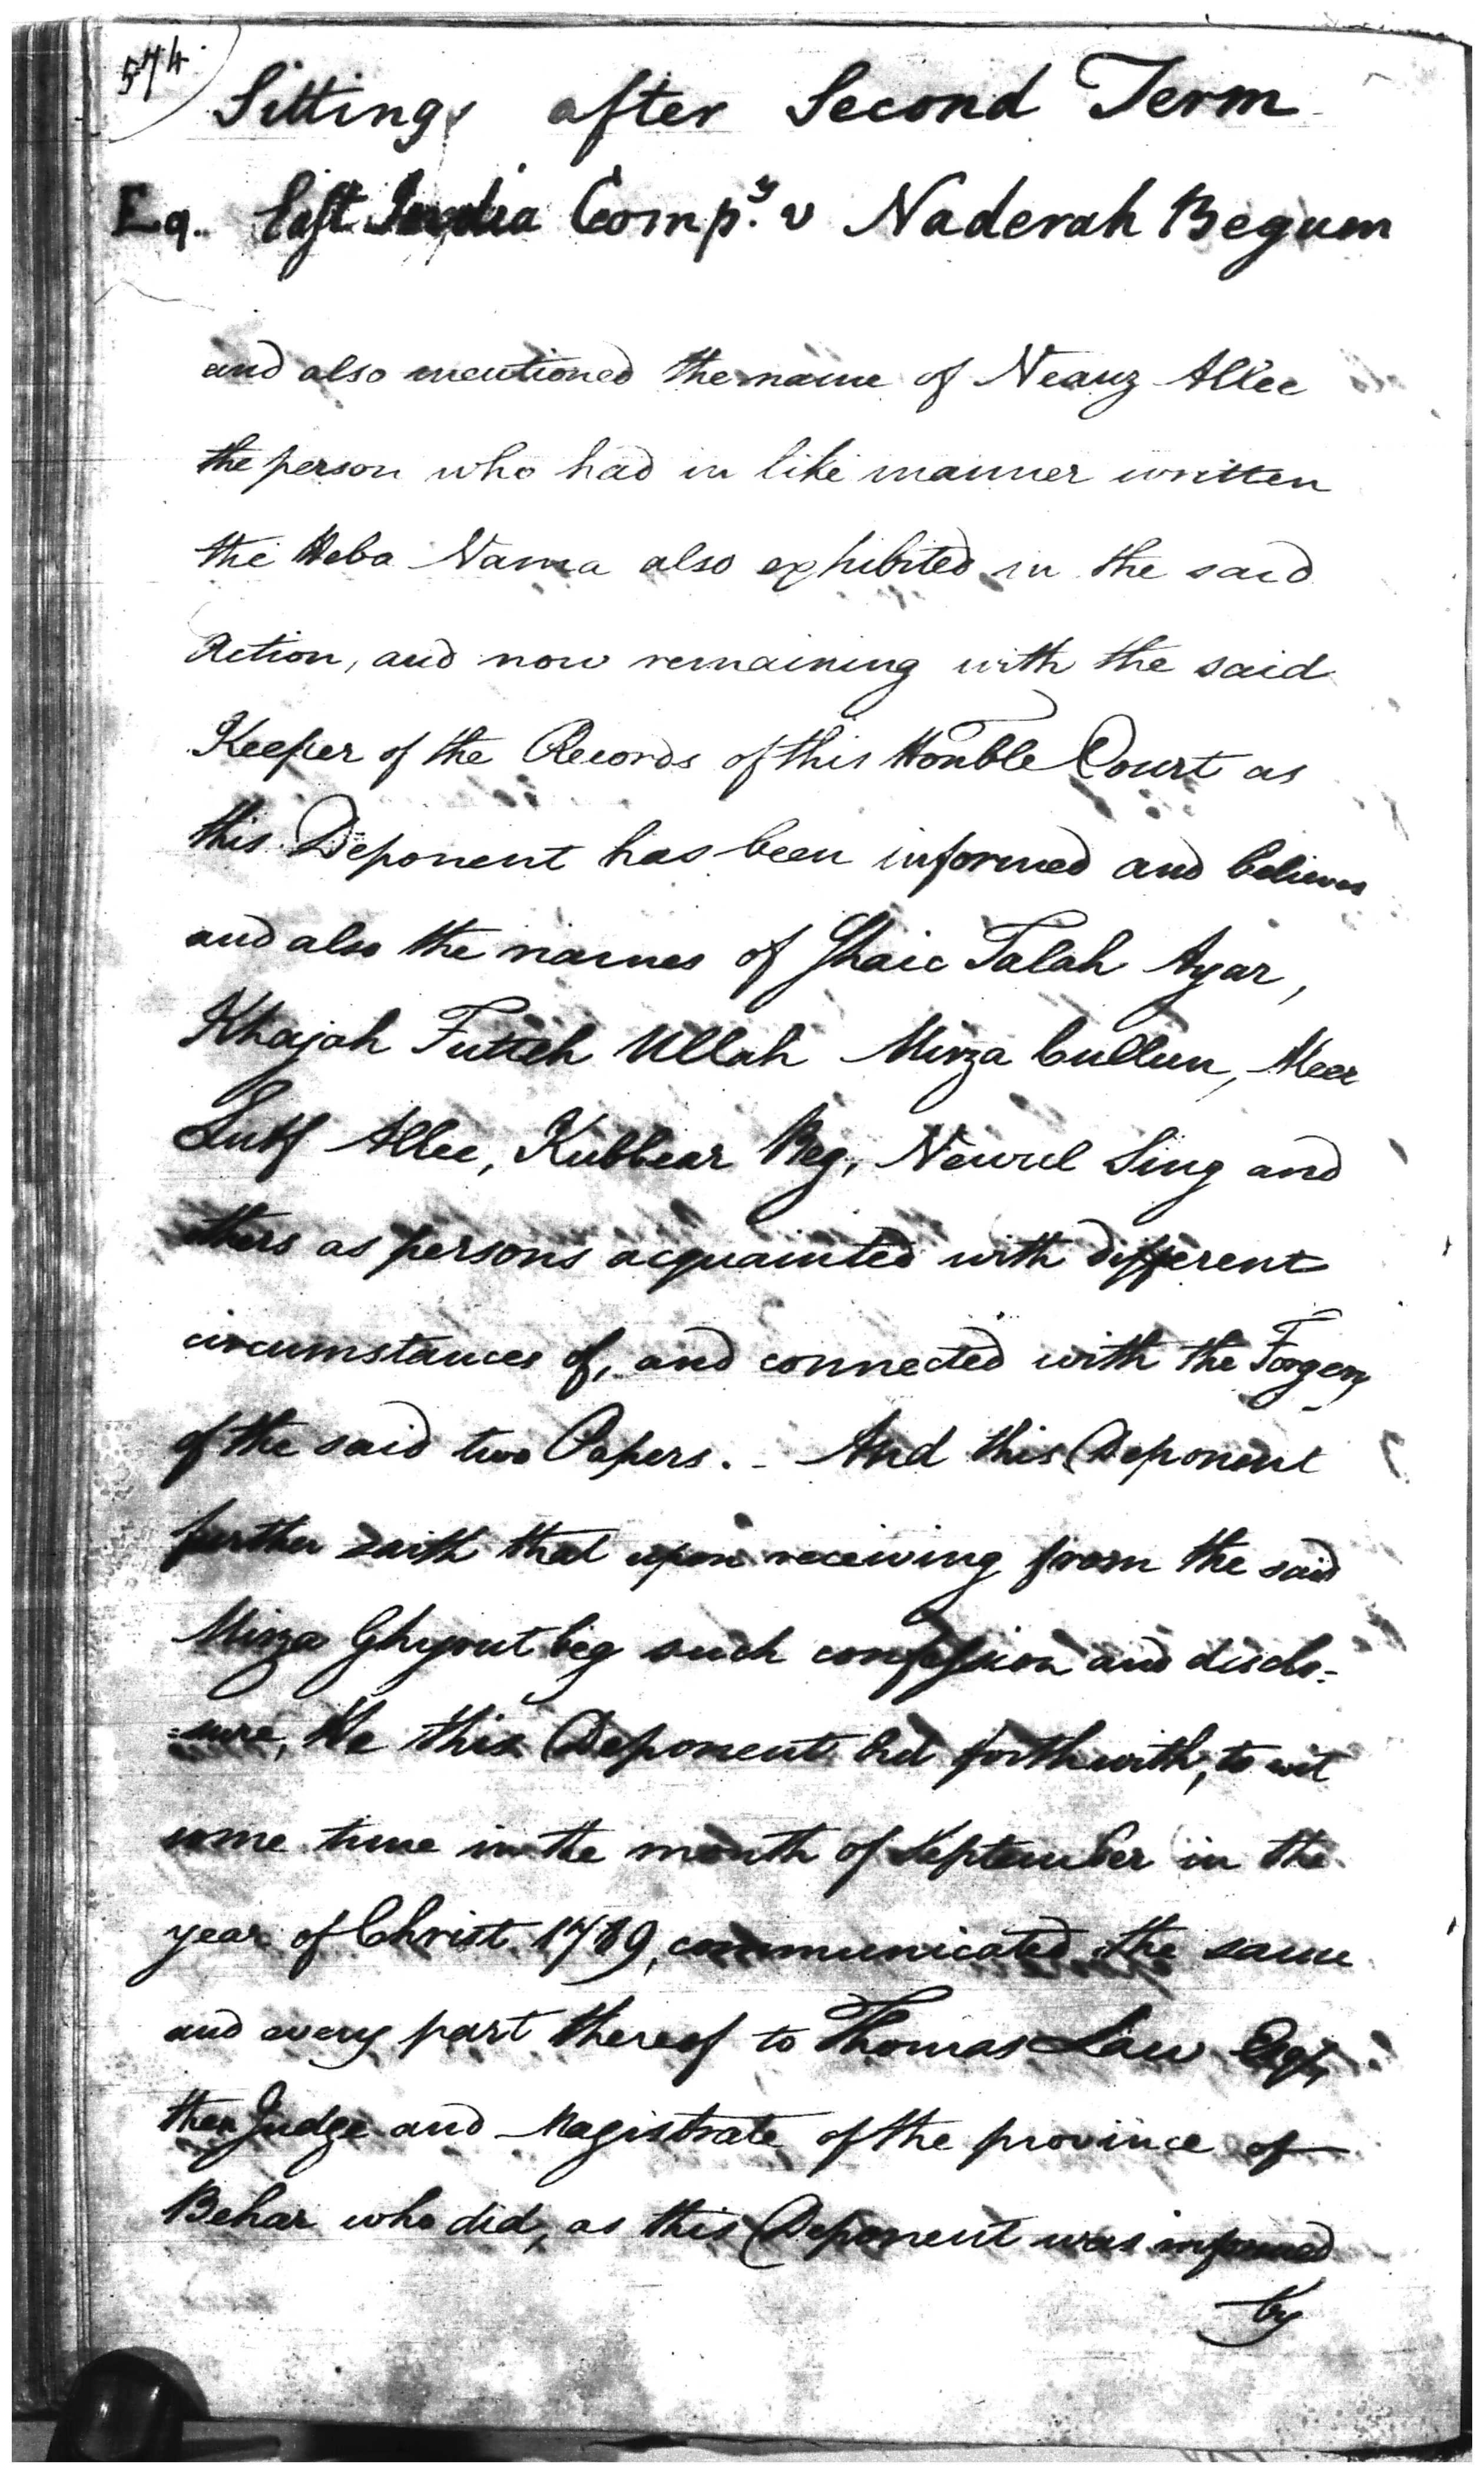 574
Sittings after Second Term
Eq. East India Comp.y v Naderah Begum
and also mentioned the name of Neauz Allee
the person who had in like manner written
the Heba Nama also exhibited in the said
Action, and now remaining with the said
Keeper of the Records of this Honble Court as
this Deponent has been informed and believes
and also the names of Shaic Talah Ayar,
Khajah Futteh Ullah Mirza Cullun, Meer
Lutf Allee, Kubbear Beg, Newul Sing and
others as persons acquainted with different
circumstances of, and connected with the Forgery
of the said two Papers. - And this Deponent
further saith that upon receiving from the said
Mirza Ghyout beg such confession and disclo=
=sure, He this Deponent did forthwith, to wit
some time in the month of September in the
year of Christ 1789, communicated the same
and every part thereof to Thomas Law Esqr,
then Judge and Magistrate of the province of
Behar who did, as this Deponent was informed
by